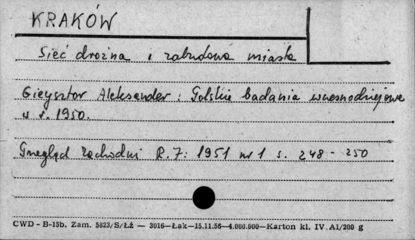 KRAKÓW
Sieć drożna i zabudowa miasta
Gieysztor Aleksander: Polskie badania wczesnodziejowe
w r. 1950.
Przegląd Zachodni R. 7: 1951 nr 1 s. 248-250
CWD - B-15b. Zam. 5823/S/Łż — 3016—Łak—15.11.56—4.000.000—Karton kl. IV. A1/200 g